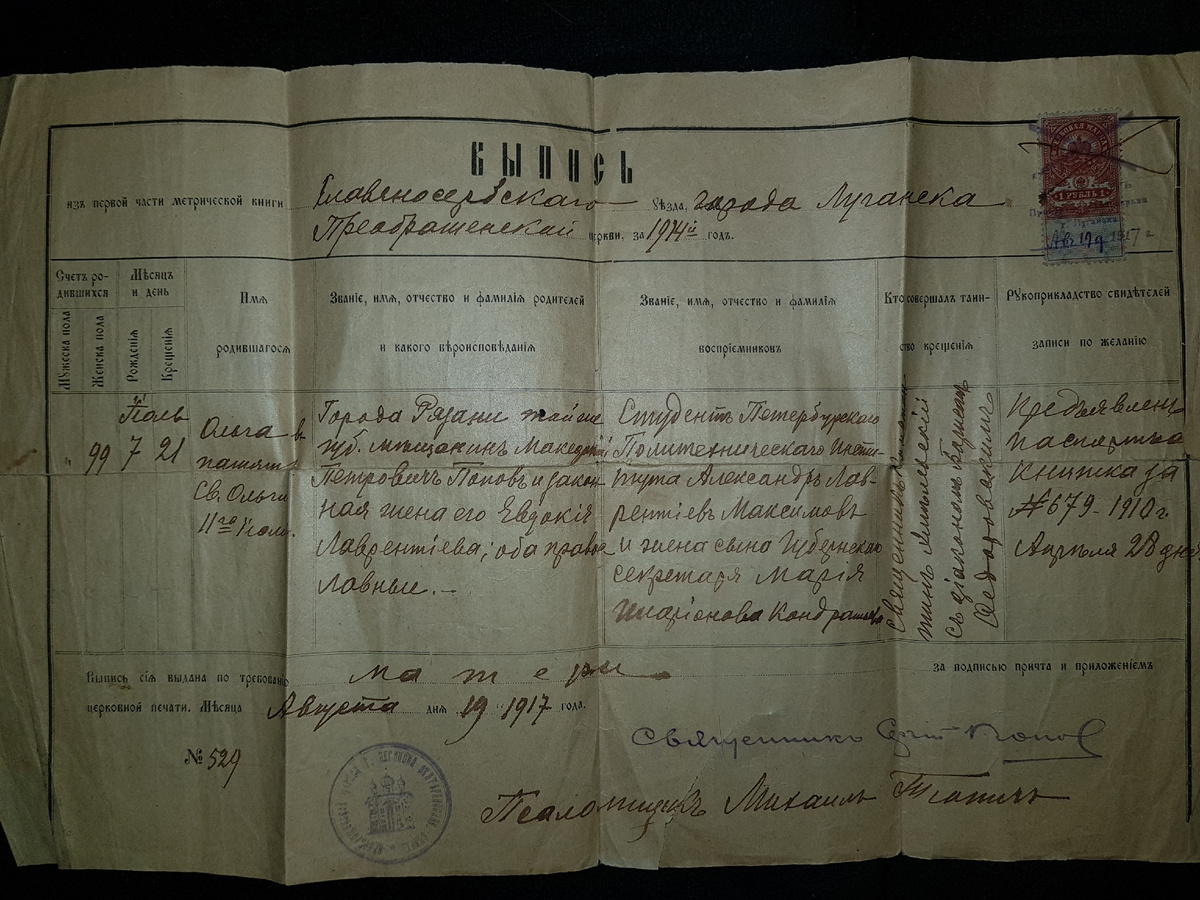 ВЫПИСЬ
изъ первой части метрической книги Славяносербскаго уѣзда, города Луганска
Преображенской церкви, за 1914й годъ.
ГЕРБОВАЯ МАРКА
1 РУБЛЬ 1
Авг 19 д 1917 г.
Счетъ ро-
дившихся
Мужеска пола
Женска пола
Мѣсяцъ
и день
Рожденія
Крещенія
Имя
родившагося
Званіе, имя, отчество и фамилія родителей
и какого вѣроисповѣданія
Званіе, имя, отчество и фамилія
воспріемниковъ
Кто совершалъ таин-
ство крещенія
Рукоприкладство свидѣтелей
записи по желанію
99
Іюль
7 21
Ольга въ
память
Св. Ольги
11го Іюля.
Города Рязани той же
губ. мѣщанинъ
Петровичъ Поповъ и закон
ная жена его Евдокія
Лаврентіева; оба право
славные.
Студентъ Петербургскаго
Политехническаго Инсти
тута Александръ Лав
рентіевъ Максимовъ
и жена сына Губернскаго
секретаря Марія
Иларіонова
Священникъ
съ діакономъ
Предъявлена
паспортная
книжка за
№679-1910 г.
Апрѣля 28 дня
Выпись сія выдана по требованію матери за подписью причта и приложеніемъ
церковной печати. Мѣсяца Августа дня 19 1917 года.
№ 529
Священникъ Попов
Псаломщикъ Михаилъ